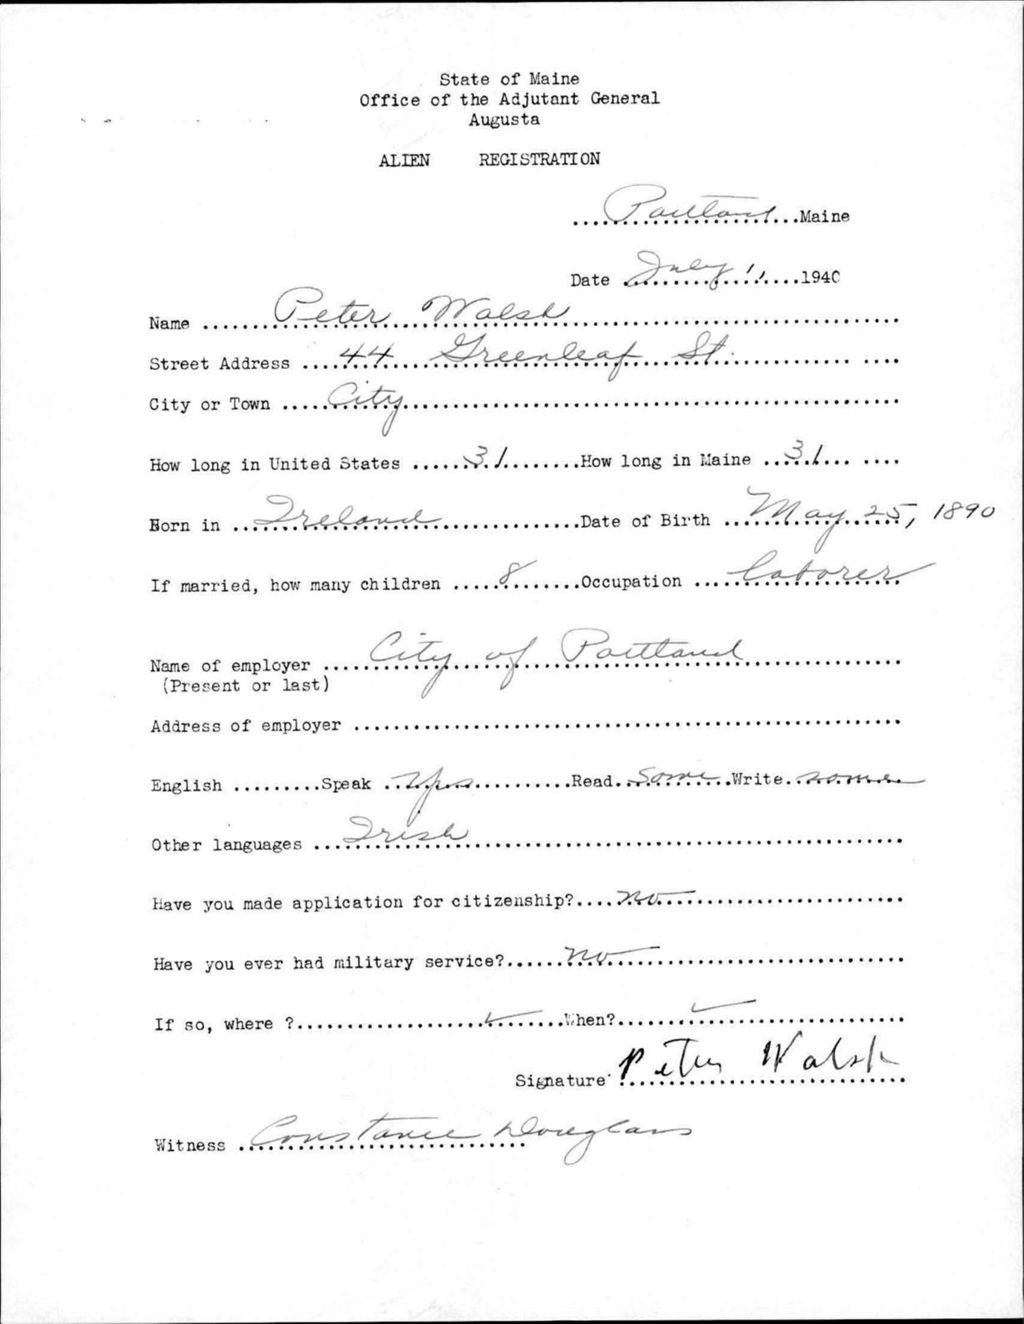 State of Maine
Office of the Adjutant General
Augusta
ALIEN REGISTRATION
Portland Maine
Date July 11 1940
Name Peter Walsh
Street Address 44 Greenleaf St.
City or Town City
How long in United States 31 How long in Maine 31
Born in Ireland Date of Birth May 25, 1890
If married, how many children 8 Occupation laborer
Name of employer City of Portland
(Present or last)
Address of employer
English Speak Yes Read Some Write some
Other languages Irish
Have you made application for citizenship? no
Have you ever had military service? no
If so, where ? When?
Signature Peter Walsh
Witness Constance Douglass